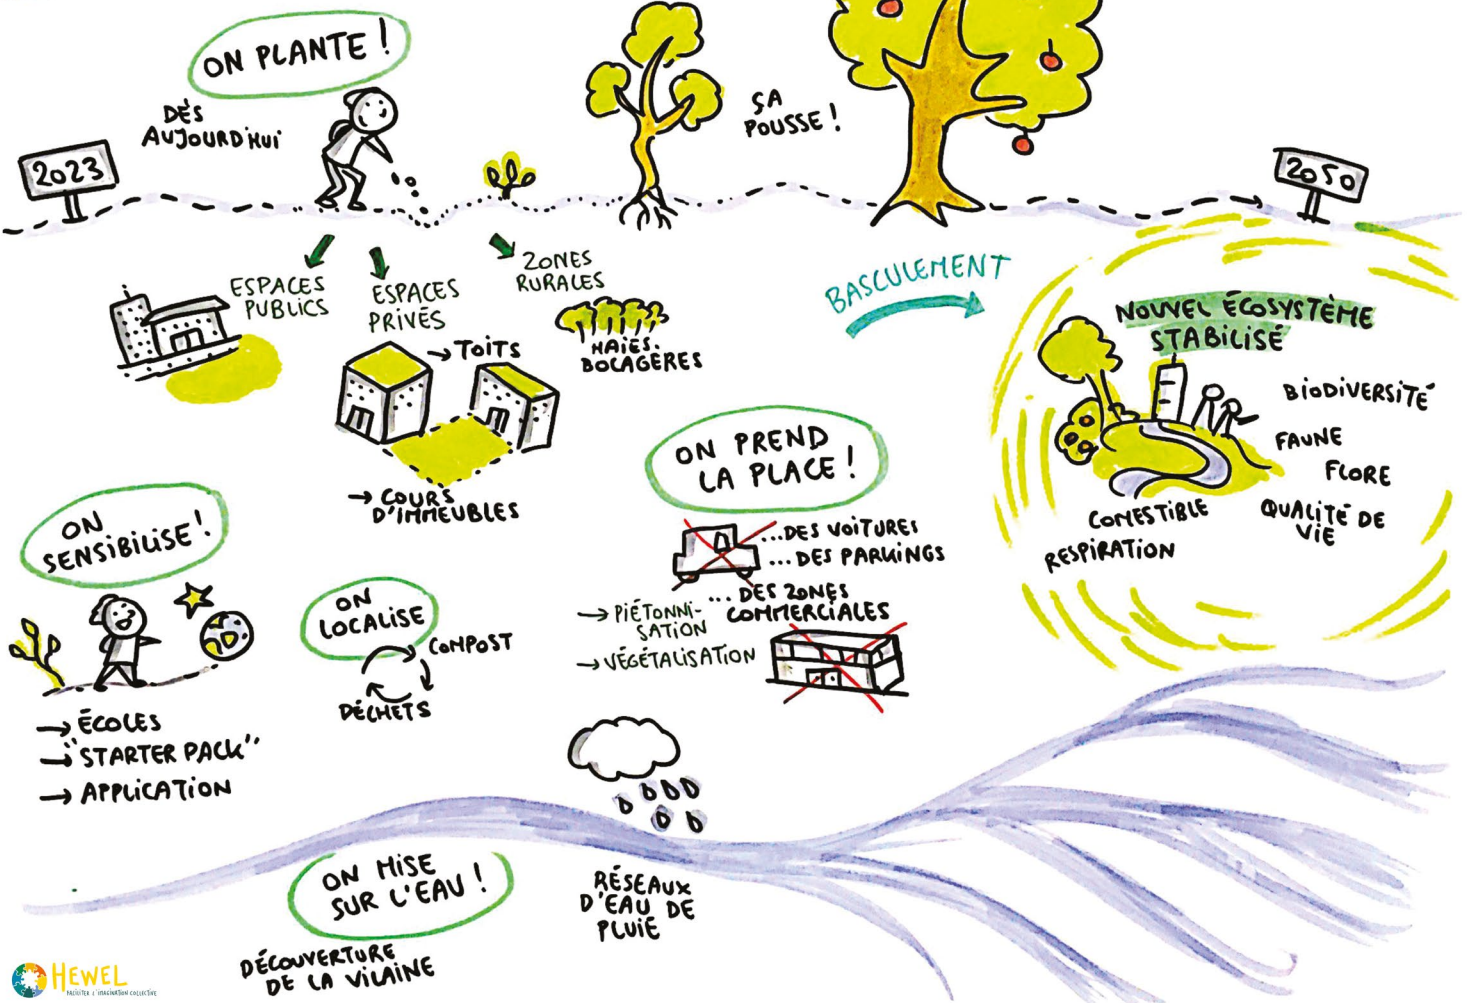 ON PLANTE !
DÈS
AUJOURD'HUI
2023
ÇA
POUSSE !
2050
ESPACES
PUBLICS
ESPACES
PRIVÉS
ZONES
RURALES
→ TOITS
HAIES
BOCAGÈRES
→ COURS
D'IMMEUBLES
BASCULEMENT
NOUVEL ÉCOSYSTÈME
STABILISÉ
BIODIVERSITÉ
FAUNE
FLORE
QUALITÉ DE
VIE
COMESTIBLE
RESPIRATION
ON PREND
LA PLACE !
...DES VOITURES
...DES PARKINGS
...DES ZONES
COMMERCIALES
→ PIÉTONNI-
SATION
→ VÉGÉTALISATION
ON
SENSIBILISE !
→ ÉCOLES
→ "STARTER PACK"
→ APPLICATION
ON
LOCALISE
COMPOST
DÉCHETS
ON MISE
SUR L'EAU !
DÉCOUVERTURE
DE LA VILAINE
RÉSEAUX
D'EAU DE
PLUIE
HEWEL
FACILITER L'IMAGINATION COLLECTIVE